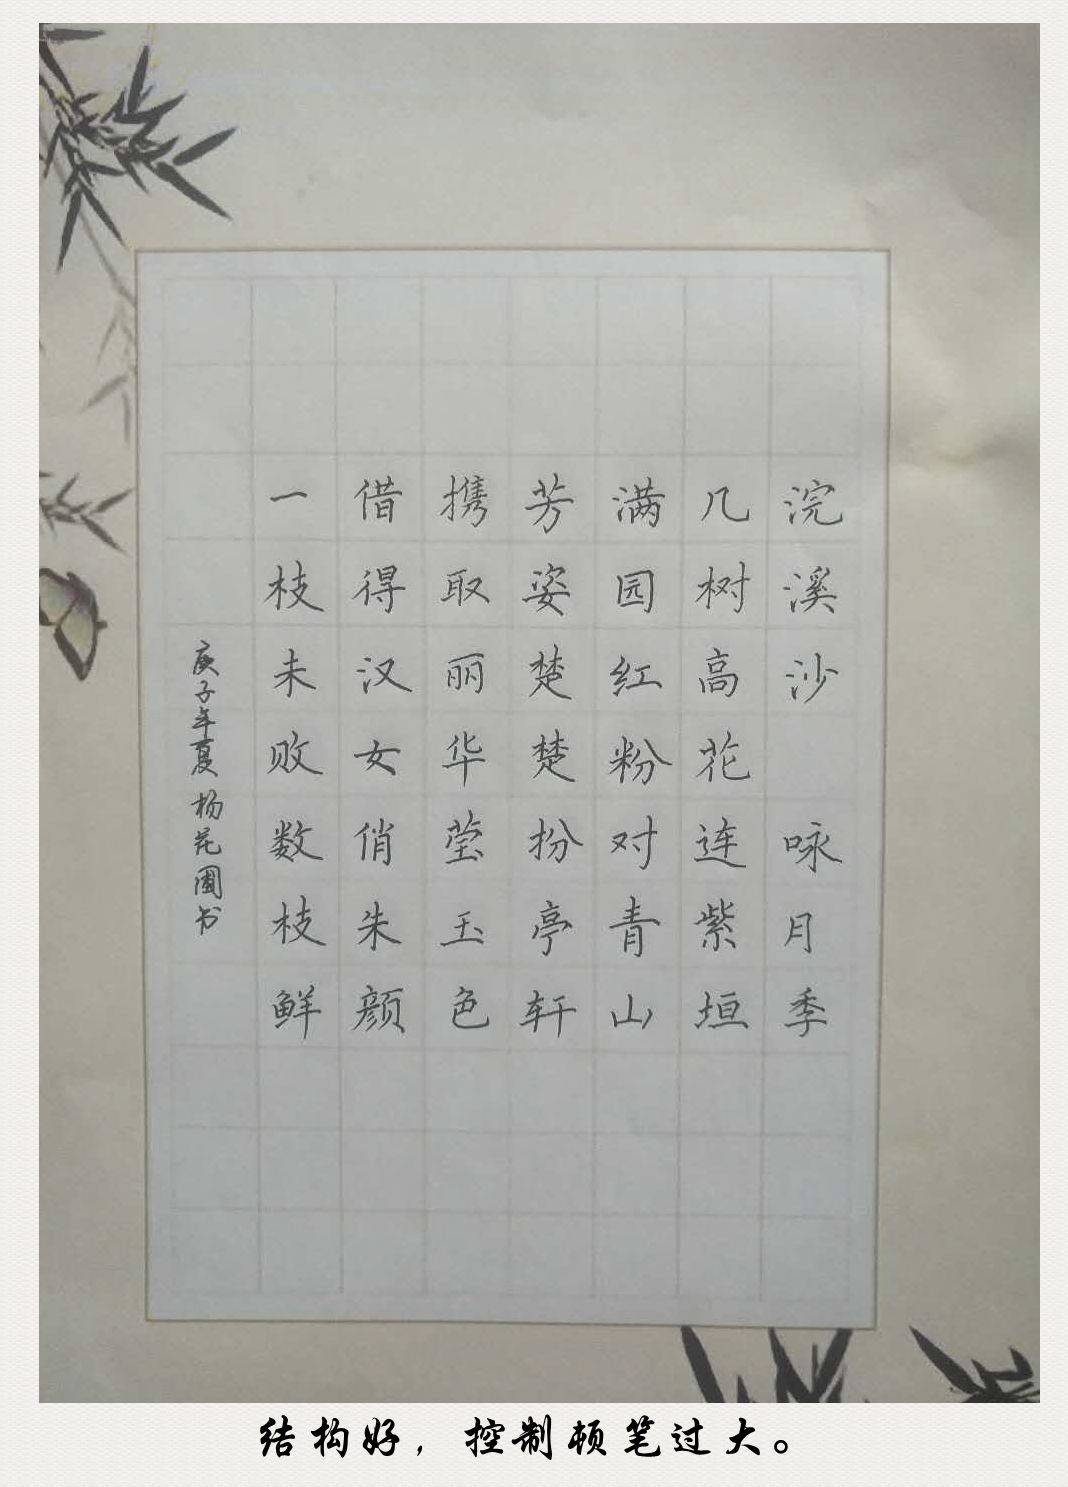 浣溪沙 咏月季
几树高花连紫垣
满园红粉对青山
芳姿楚楚扮亭轩
携取丽华莹玉色
借得汉女俏朱颜
一枝未败数枝鲜
庚子年夏杨花圃书
结构好，控制顿笔过大。